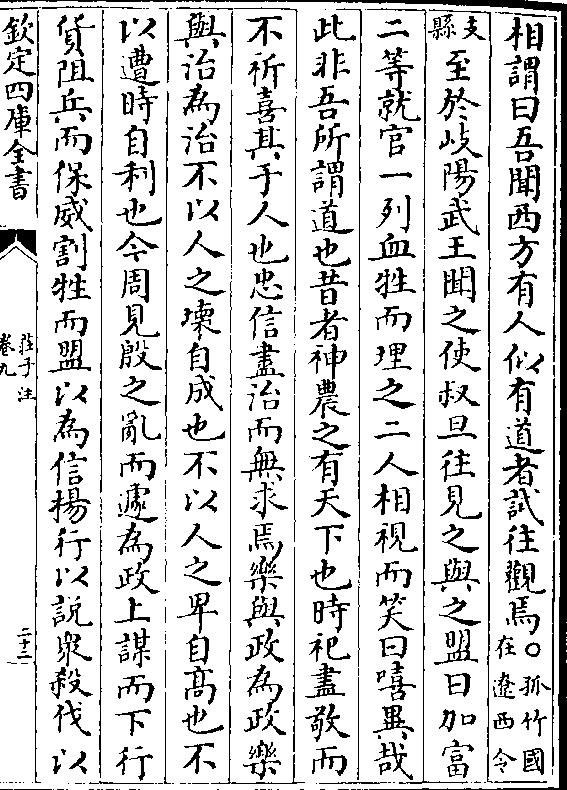 相謂曰吾聞西方有人似有道者試往觀焉○孤竹國在遼西令
支縣至於岐陽武王聞之使叔旦往見之與之盟曰加富
二等就官一列血牲而理之二人相視而笑曰嘻異哉
此非吾所謂道也昔者神農之有天下也時祀盡敬而
不祈喜其于人也忠信盡治而無求焉樂與政為政樂
與治為治不以人之壞自成也不以人之卑自高也不
以遭時自利也今周見殷之亂而遽為政上謀而下行
貨阻兵而保威割牲而盟以為信楊行以說衆殺伐以
欽定四庫全書
莊子注
卷九
二十二